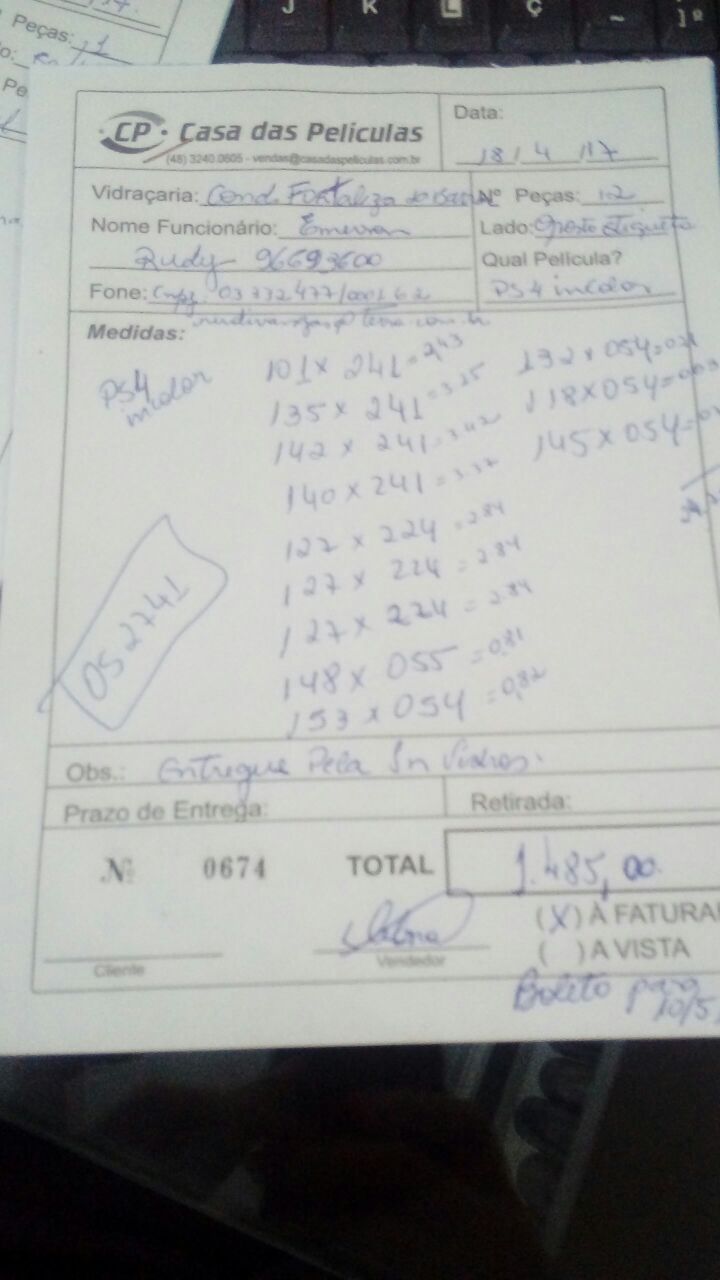 Peças: 1
Pe
J K L Ç ~ ] º
CP Casa das Películas
(48) 3240.0605 - vendas@casadaspeliculas.com.br
Data:
18/4/17
Vidraçaria: Cond. Fortaliza do
Nº Peças: 12
Nome Funcionário: Emerson
Lado: oposto etiqueta
Rudy 96693600
Qual Película?
Fone: Cnpj. 03732477/0001 62
PS4 incolor
@terra.com.br
Medidas:
PS4
incolor
101 x 241 = 2,43
132 x 054 =
135 x 241 = 3.25
118 x 054 =
142 x 241 = 3.42
145 x 054 =
140 x 241 = 3.37
127 x 224 = 2.84
127 x 224 = 2.84
127 x 224 = 2.84
148 x 055 = 0,81
153 x 054 = 0,82
052741
Obs.: Entregue Pela Sn Vidros.
Prazo de Entrega:
Retirada:
Nº 0674
TOTAL 1.485,00
(X) À FATURA
( ) A VISTA
Cliente
Vendedor
Boleto para
10/5